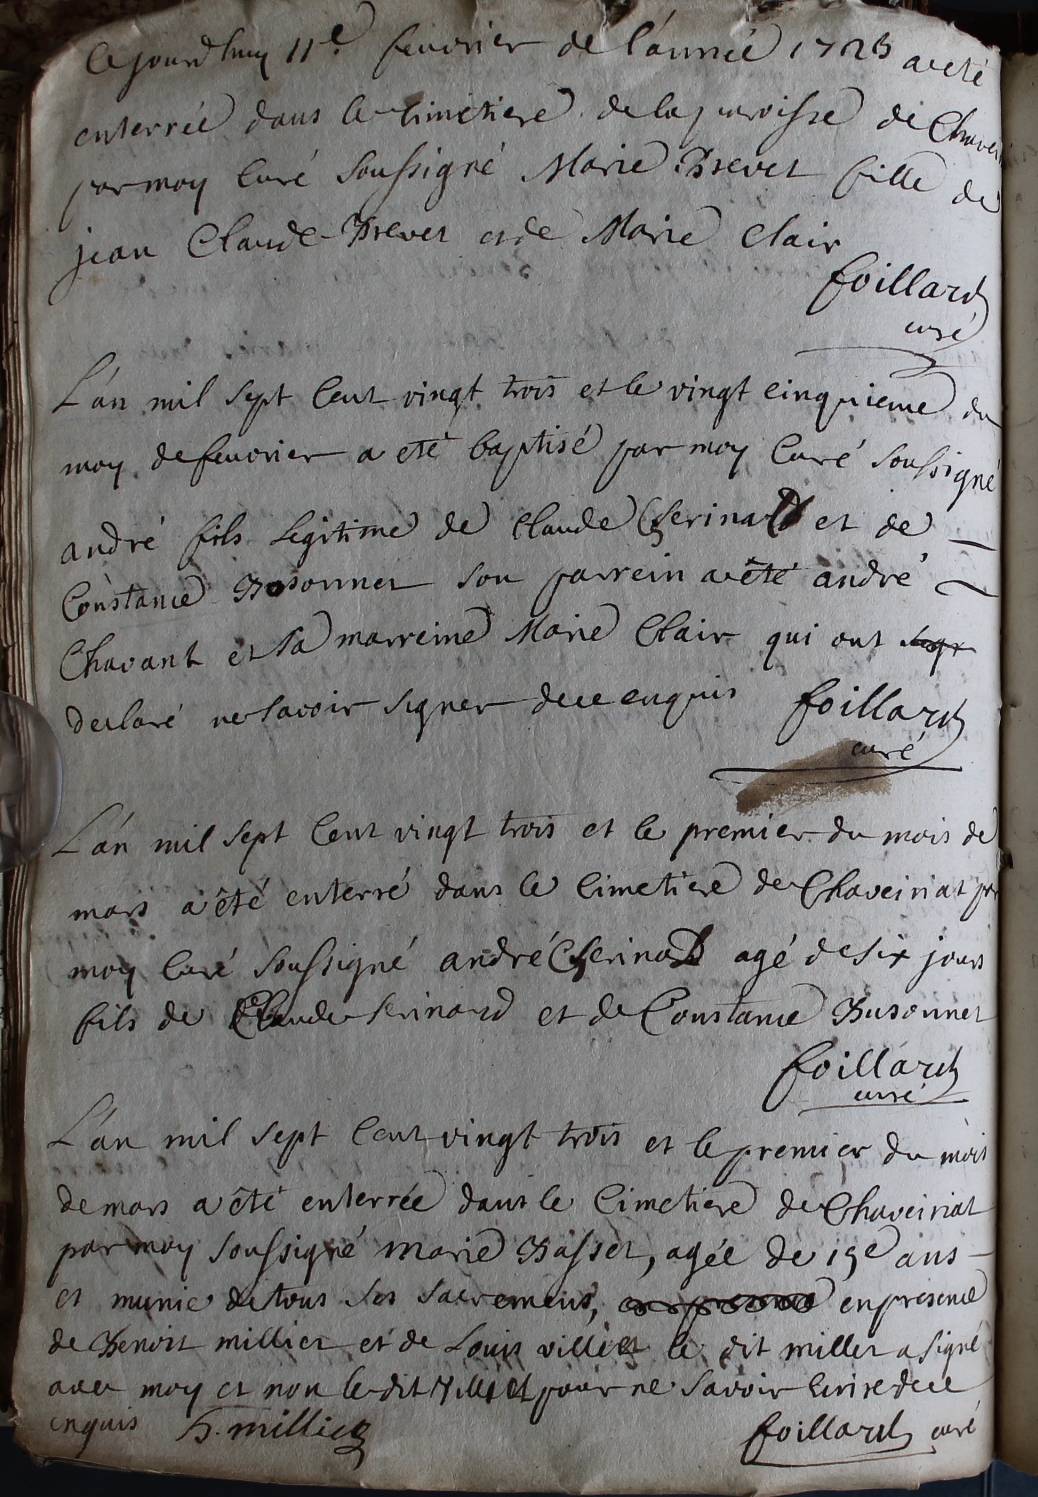 Cejourdhuy 11e. feuvrier de l'année 1723 a eté
enterrée dans le cimetiere de la paroisse de Chavei
par moy Curé Soussigné Marie Brevet fille de
jean Claude Brevet et de Marie Clair
foillard
curé
L'an mil sept Cent vingt trois et le vingt cinquieme du
moy de feuvrier a eté baptisé par moy Curé soussigné
andré fils legitime de Claude Serinard et de
Constance Busonnet son parrein a eté andré
Chavant et sa marreine Marie Clair qui ont
declaré ne savoir signer de ce enquis foillard
curé
L'an mil sept Cent vingt trois et le premier du mois de
mars a été enterré dans le Cimetiere de Chaveiriat par
moy Curé soussigné andré Serinard agé de six jours
fils de Claude Serinard et de Constance Busonnet
foillard
curé
L'an mil sept Cent vingt trois et le premier du mois
de mars a été enterrée dans le Cimetiere de Chaveiriat
par moy soussigné marie Basset, agée de 19e ans
et munie de tous ses sacremens, en presence
de Benoit millier et de Louis villiet le dit millet a signé
avec moy et non le dit Villiet pour ne savoir ecrire de ce
enquis B. millier foillard curé